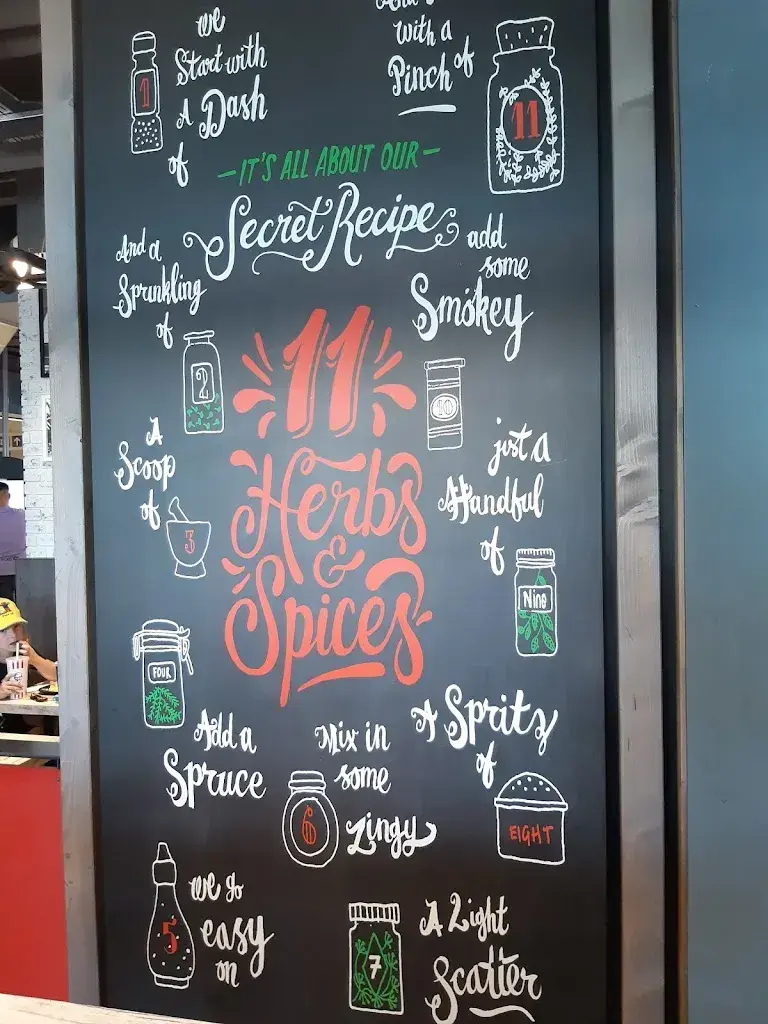 we
Start with
A Dash
of
1
with a
Pinch of
11
IT'S ALL ABOUT OUR
Secret Recipe
And a
Sprinkling
of
2
add
some
Smokey
10
11
Herbs
&
Spices
A
Scoop
of
3
just a
Handful
of
Nine
FOUR
Add a
Spruce
Mix in
some
Zingy
6
A Spritz
of
EIGHT
5
we go
easy
on
7
A Light
Scatter